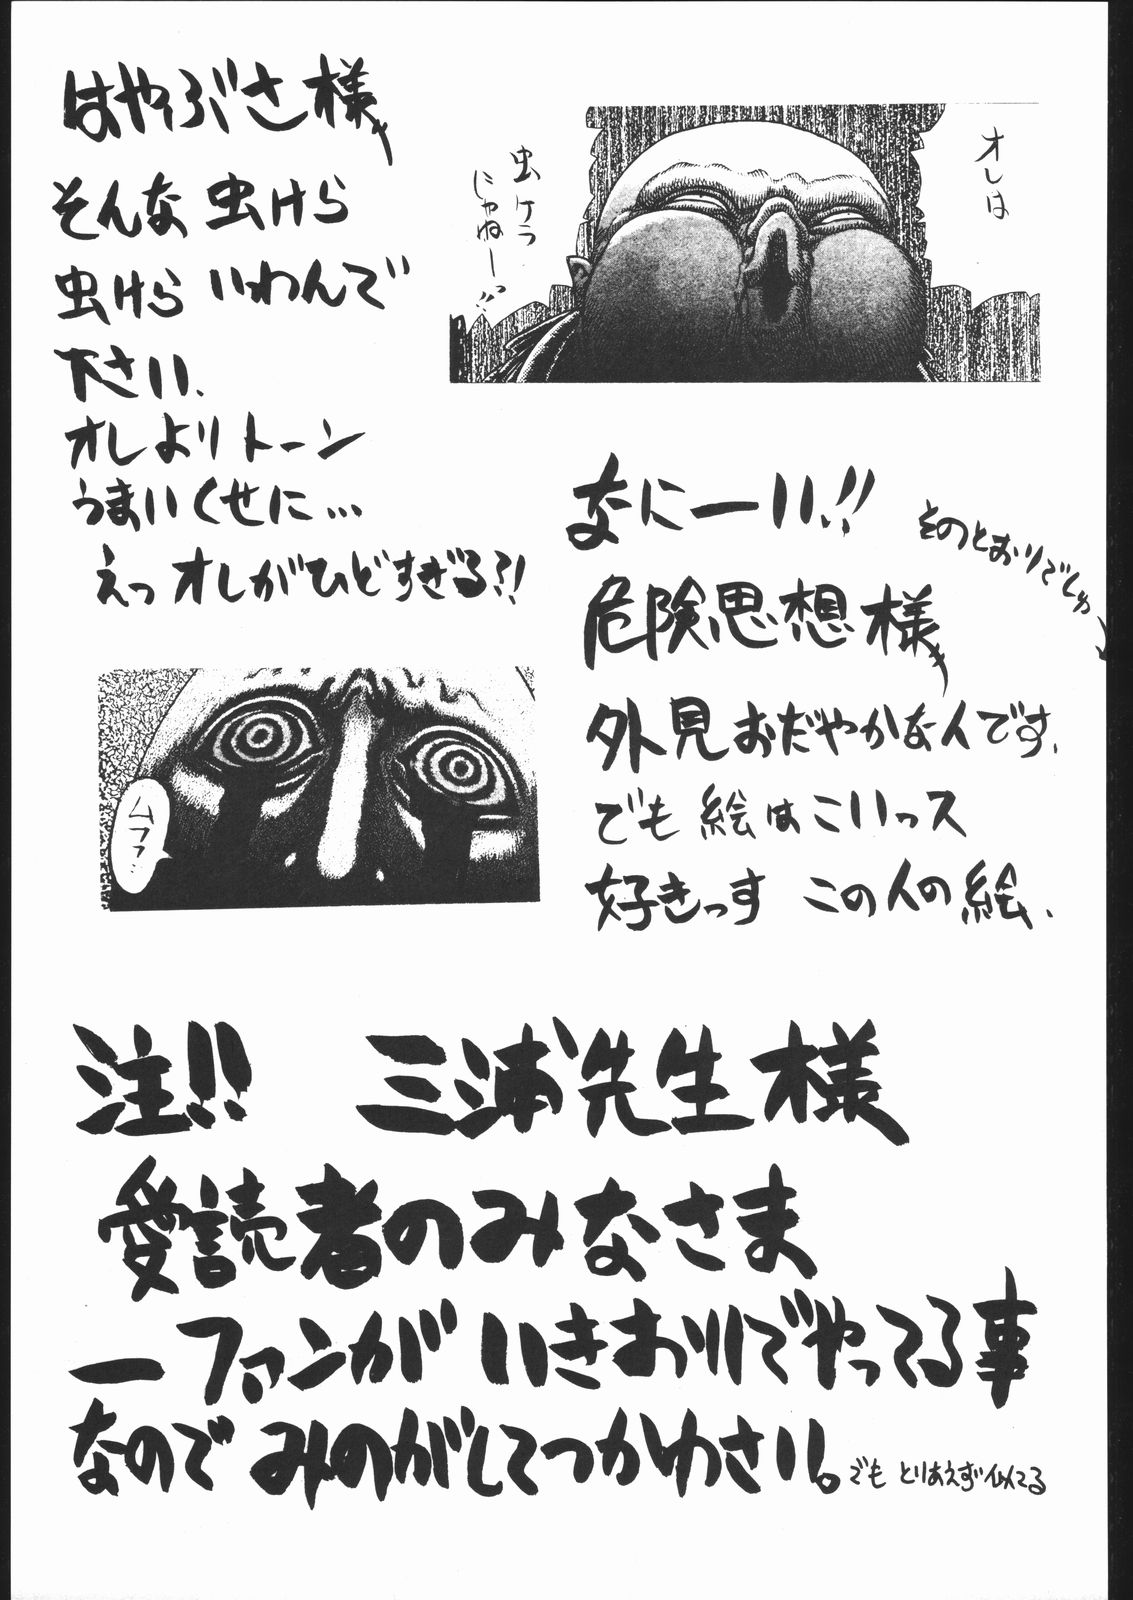 はやぶさ様
そんな虫けら
虫けらいわんで
下さい、
オレよりトーン
うまいくせに…
えっオレがひどすぎる?!
オレは
虫ケラ
じゃねー!!
なにーい!!
そのとおりでしゅ
危険思想様
外見おだやかな人です、
でも絵はこいっス
好きっす この人の絵、
ムフフ…
注!! 三浦先生様
愛読者のみなさま
一ファンがいきおいでやってる事
なのでみのがしてつかわさい。
でも とりあえず似てる